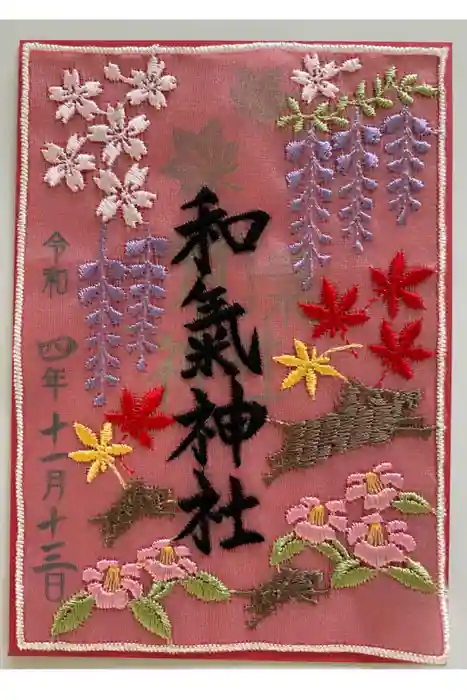 和氣神社
令和 四年 十一月 十三日